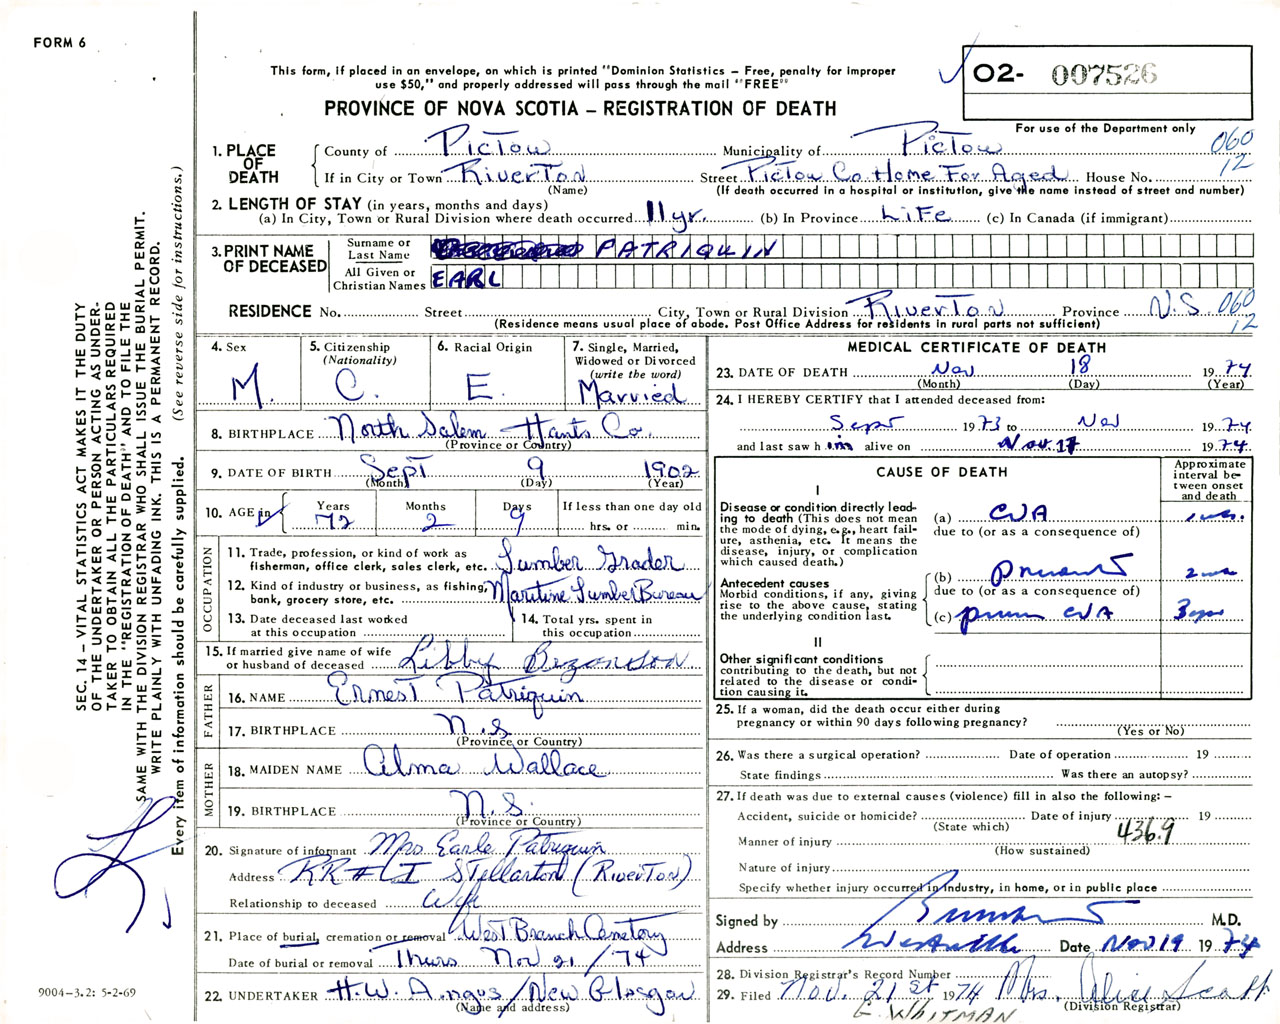 FORM 6
This form, if placed in an envelope, on which is printed "Dominion Statistics – Free, penalty for improper
use $50," and properly addressed will pass through the mail "FREE"
PROVINCE OF NOVA SCOTIA – REGISTRATION OF DEATH
02- 007526
For use of the Department only
060
12
1. PLACE OF DEATH
County of Pictou Municipality of Pictou
If in City or Town Riverton Street Pictou Co Home For Aged House No.
(Name) (If death occurred in a hospital or institution, give the name instead of street and number)
2. LENGTH OF STAY (in years, months and days)
(a) In City, Town or Rural Division where death occurred 11 yr. (b) In Province Life (c) In Canada (if immigrant)
3. PRINT NAME OF DECEASED
Surname or Last Name PATRIQUIN
All Given or Christian Names EARL
RESIDENCE No. Street City, Town or Rural Division Riverton Province N.S. 060
12
(Residence means usual place of abode. Post Office Address for residents in rural parts not sufficient)
4. Sex
M.
5. Citizenship
(Nationality)
C.
6. Racial Origin
E.
7. Single, Married,
Widowed or Divorced
(write the word)
Married
8. BIRTHPLACE North Salem Hants Co.
(Province or Country)
9. DATE OF BIRTH Sept 9 1902
(Month) (Day) (Year)
10. AGE in
Years Months Days If less than one day old
72 2 9 hrs. or min.
OCCUPATION
11. Trade, profession, or kind of work as
fisherman, office clerk, sales clerk, etc. Lumber Grader
12. Kind of industry or business, as fishing,
bank, grocery store, etc. Maritime Lumber Bureau
13. Date deceased last worked
at this occupation
14. Total yrs. spent in
this occupation
15. If married give name of wife
or husband of deceased Libby Bezanson
FATHER
16. NAME Ernest Patriquin
17. BIRTHPLACE N.S.
(Province or Country)
MOTHER
18. MAIDEN NAME Alma Wallace
19. BIRTHPLACE N.S.
(Province or Country)
20. Signature of informant Mrs Earle Patriquin
Address RR # 1 Stellarton (Riverton)
Relationship to deceased Wife
21. Place of burial, cremation or removal West Branch Cemetery
Date of burial or removal Thurs Nov 21/74
22. UNDERTAKER H.W. Angus/New Glasgow
(Name and address)
MEDICAL CERTIFICATE OF DEATH
23. DATE OF DEATH Nov 18 1974
(Month) (Day) (Year)
24. I HEREBY CERTIFY that I attended deceased from:
Sept 1973 to Nov 1974
and last saw him alive on Nov. 17 1974
CAUSE OF DEATH
Approximate
interval be-
tween onset
and death
I
Disease or condition directly lead-
ing to death (This does not mean
the mode of dying, e.g., heart fail-
ure, asthenia, etc. It means the
disease, injury, or complication
which caused death.)
(a) CVA
due to (or as a consequence of)
Antecedent causes
Morbid conditions, if any, giving
rise to the above cause, stating
the underlying condition last.
(b)
due to (or as a consequence of)
(c) CVA
II
Other significant conditions
contributing to the death, but not
related to the disease or condi-
tion causing it.
25. If a woman, did the death occur either during
pregnancy or within 90 days following pregnancy?
(Yes or No)
26. Was there a surgical operation? Date of operation 19
State findings Was there an autopsy?
27. If death was due to external causes (violence) fill in also the following: –
Accident, suicide or homicide? Date of injury 19
(State which)
436.9
Manner of injury
(How sustained)
Nature of injury
Specify whether injury occurred in industry, in home, or in public place
Signed by M.D.
Address Westville Date Nov 19 1974
28. Division Registrar's Record Number
29. Filed Nov. 21st 1974 Mrs. Alice Scott
(Division Registrar)
E. WHITMAN
SEC. 14 – VITAL STATISTICS ACT MAKES IT THE DUTY
OF THE UNDERTAKER OR PERSON ACTING AS UNDER-
TAKER TO OBTAIN ALL THE PARTICULARS REQUIRED
IN THE "REGISTRATION OF DEATH" AND TO FILE THE
SAME WITH THE DIVISION REGISTRAR WHO SHALL ISSUE THE BURIAL PERMIT.
WRITE PLAINLY WITH UNFADING INK. THIS IS A PERMANENT RECORD.
Every item of information should be carefully supplied. (See reverse side for instructions.)
9004-3.2: 5-2-69